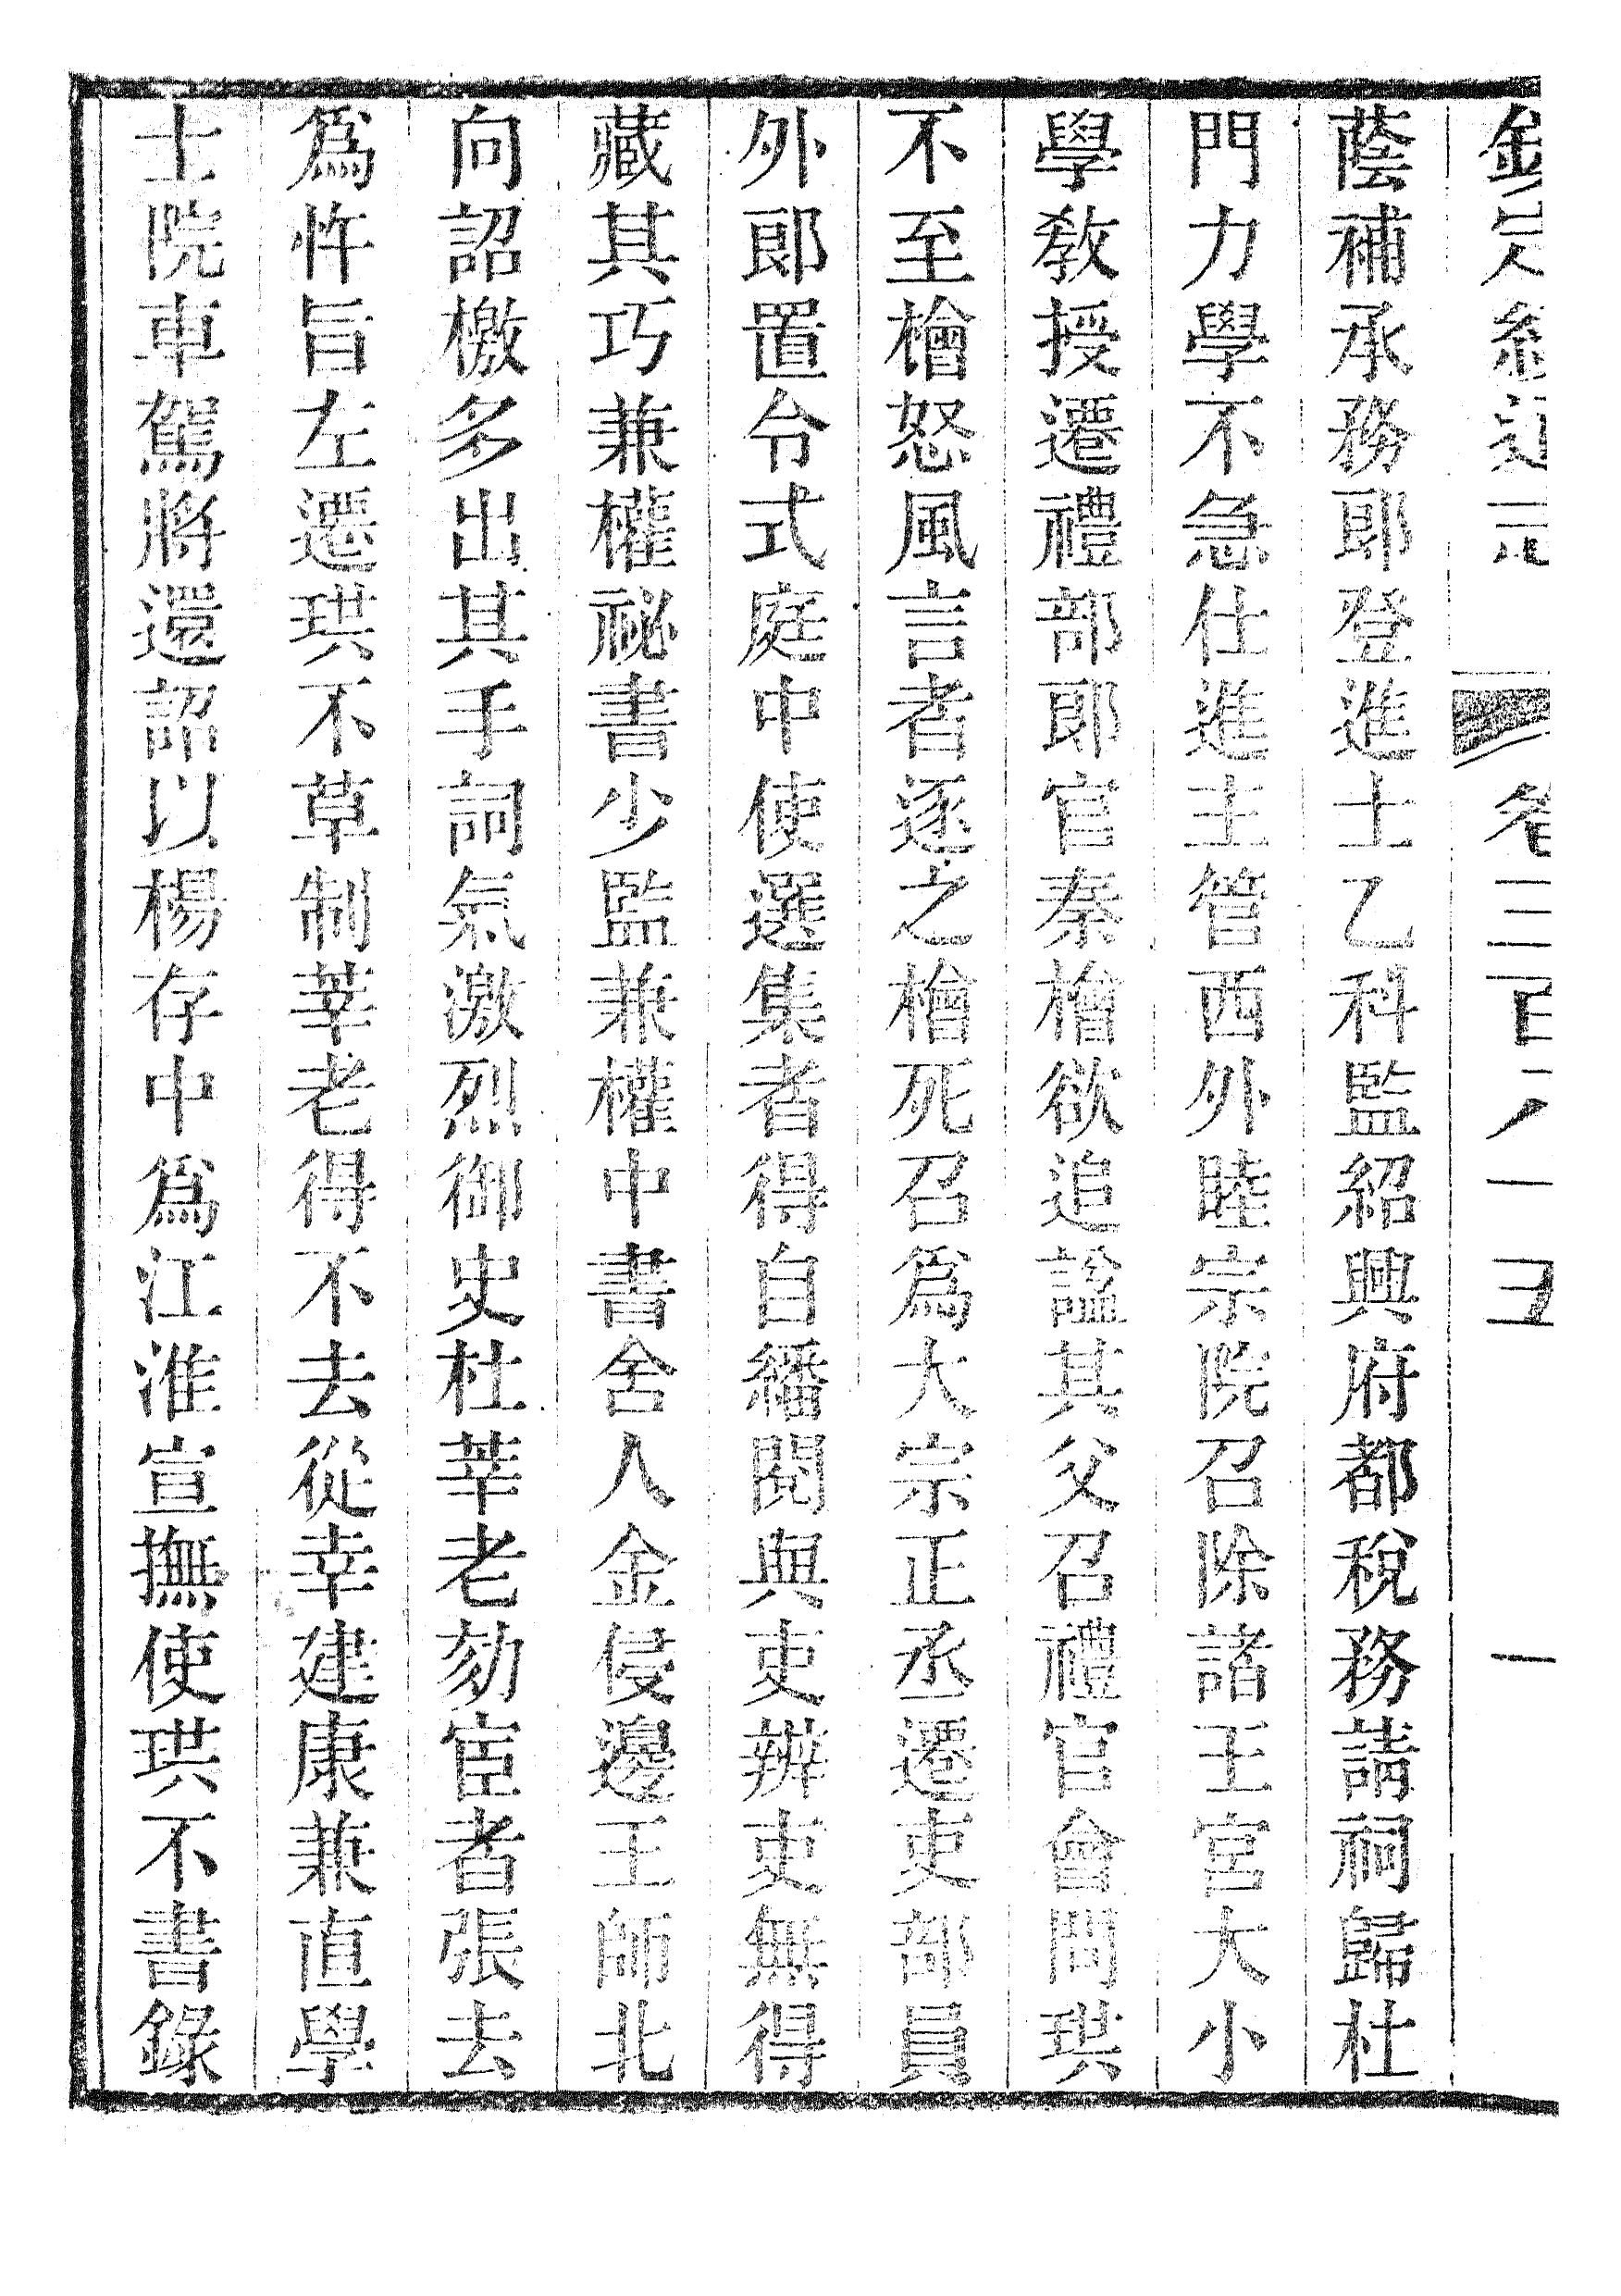 蔭補承務郎登進士乙科監紹興府都稅務請祠歸杜
門力學不急仕進主管西外睦宗院召除諸王宮大小
學敎授遷禮部郎官秦檜欲追諡其父召禮官會問珙
不至檜怒風言者逐之檜死召爲大宗正丞遷吏部員
外郎置令式庭中使選集者得自繙閱與吏辨吏無得
藏其巧兼權祕書少監兼權中書舍人金侵邊王師北
向詔檄多出其手詞氣激烈御史杜莘老劾宦者張去
爲忤旨左遷珙不草制莘老得不去從幸建康兼直學
士院車駕將還詔以楊存中爲江淮宣撫使珙不書錄